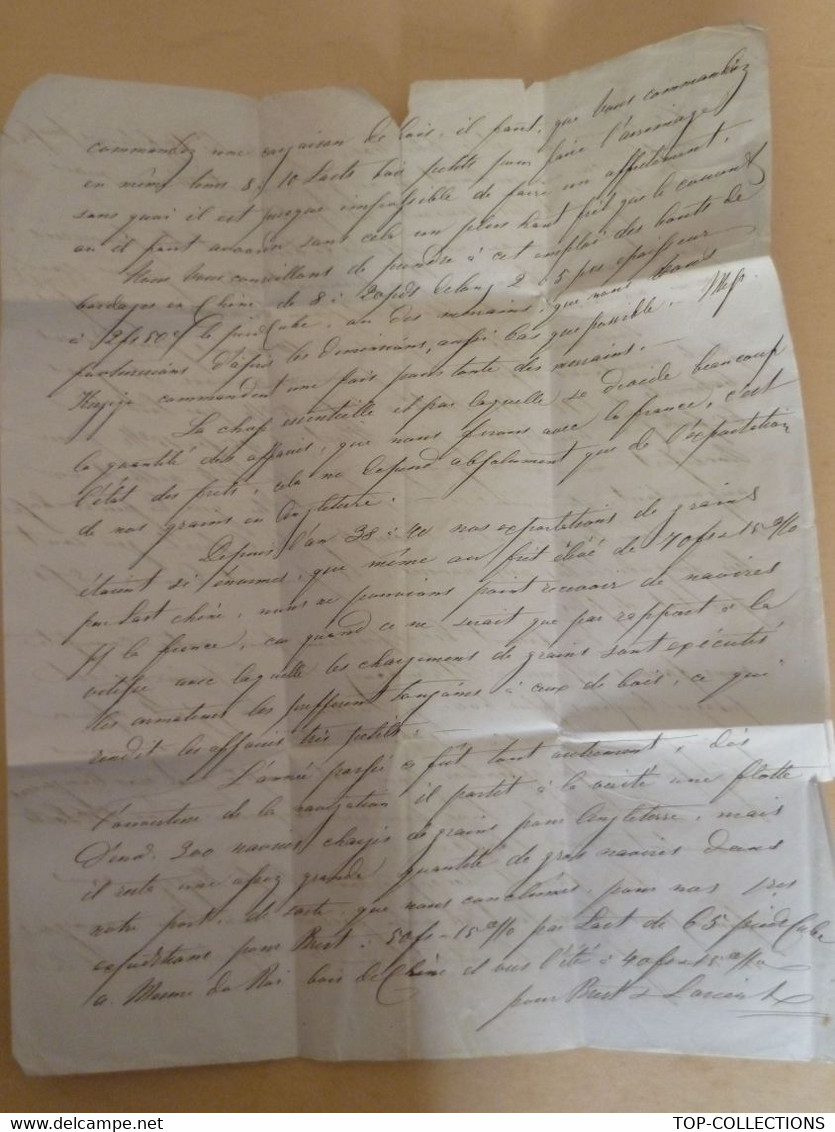 commandez une cargaison de bois, il faut, que vous commandiez
en même tems 8 à 10 Lasts bois petits pour faire l'arrimage,
sans quoi il est presque impossible de faire un affretement,
ou il faut avancer sans cela un plus haut frêt que le courant
Nous vous conseillons de prendre à cet emploi des bouts de
bordages en Chêne de 8 à 20 pds de long 2 à 5 pes épaisseur
à 2 fs 50 cs le pied Cube, ou des merrains, que nous vous
fournirions d'après les dimensions, aussi bas que possible. Mess.
commandent une fois pour toute des merrains.
La chose essentielle et par laquelle se décide beaucoup
la quantité des affaires, que nous ferons avec la france, c'est
l'état des frêts, cela ne dépend absolument que de l'exportation
de nos grains en Angleterre.
Depuis l'an 38 à 40 nos exportations de grains
étaient si énormes, que même au frêt élevé de 70 fs & 15 %
par Last chêne, nous ne pouvions point recevoir de navires
pr la france, car quand ce ne serait que par rapport à la
vitesse avec laquelle les chargemens de grains sont exécutés
les armateurs les preffèrent toujours à ceux de bois, ce qui
rendit les affaires très petites.
L'année passée a fût tout autrement, dès
l'ouverture de la navigation il partit à la vérité une flotte
d'env. 200 navires chargés de grains pour l'Angleterre, mais
il resta une assez grande quantité de gros navires dans
notre port, de sorte que nous conclumes, pour nos
expéditions pour Brest à 50 fs & 15 % par Last de 65 pieds Cube
a Mesure du Roi bois de Chêne et vers l'été à 40 fs & 15 %
pour Brest & Lorient
TOP-COLLECTIONS